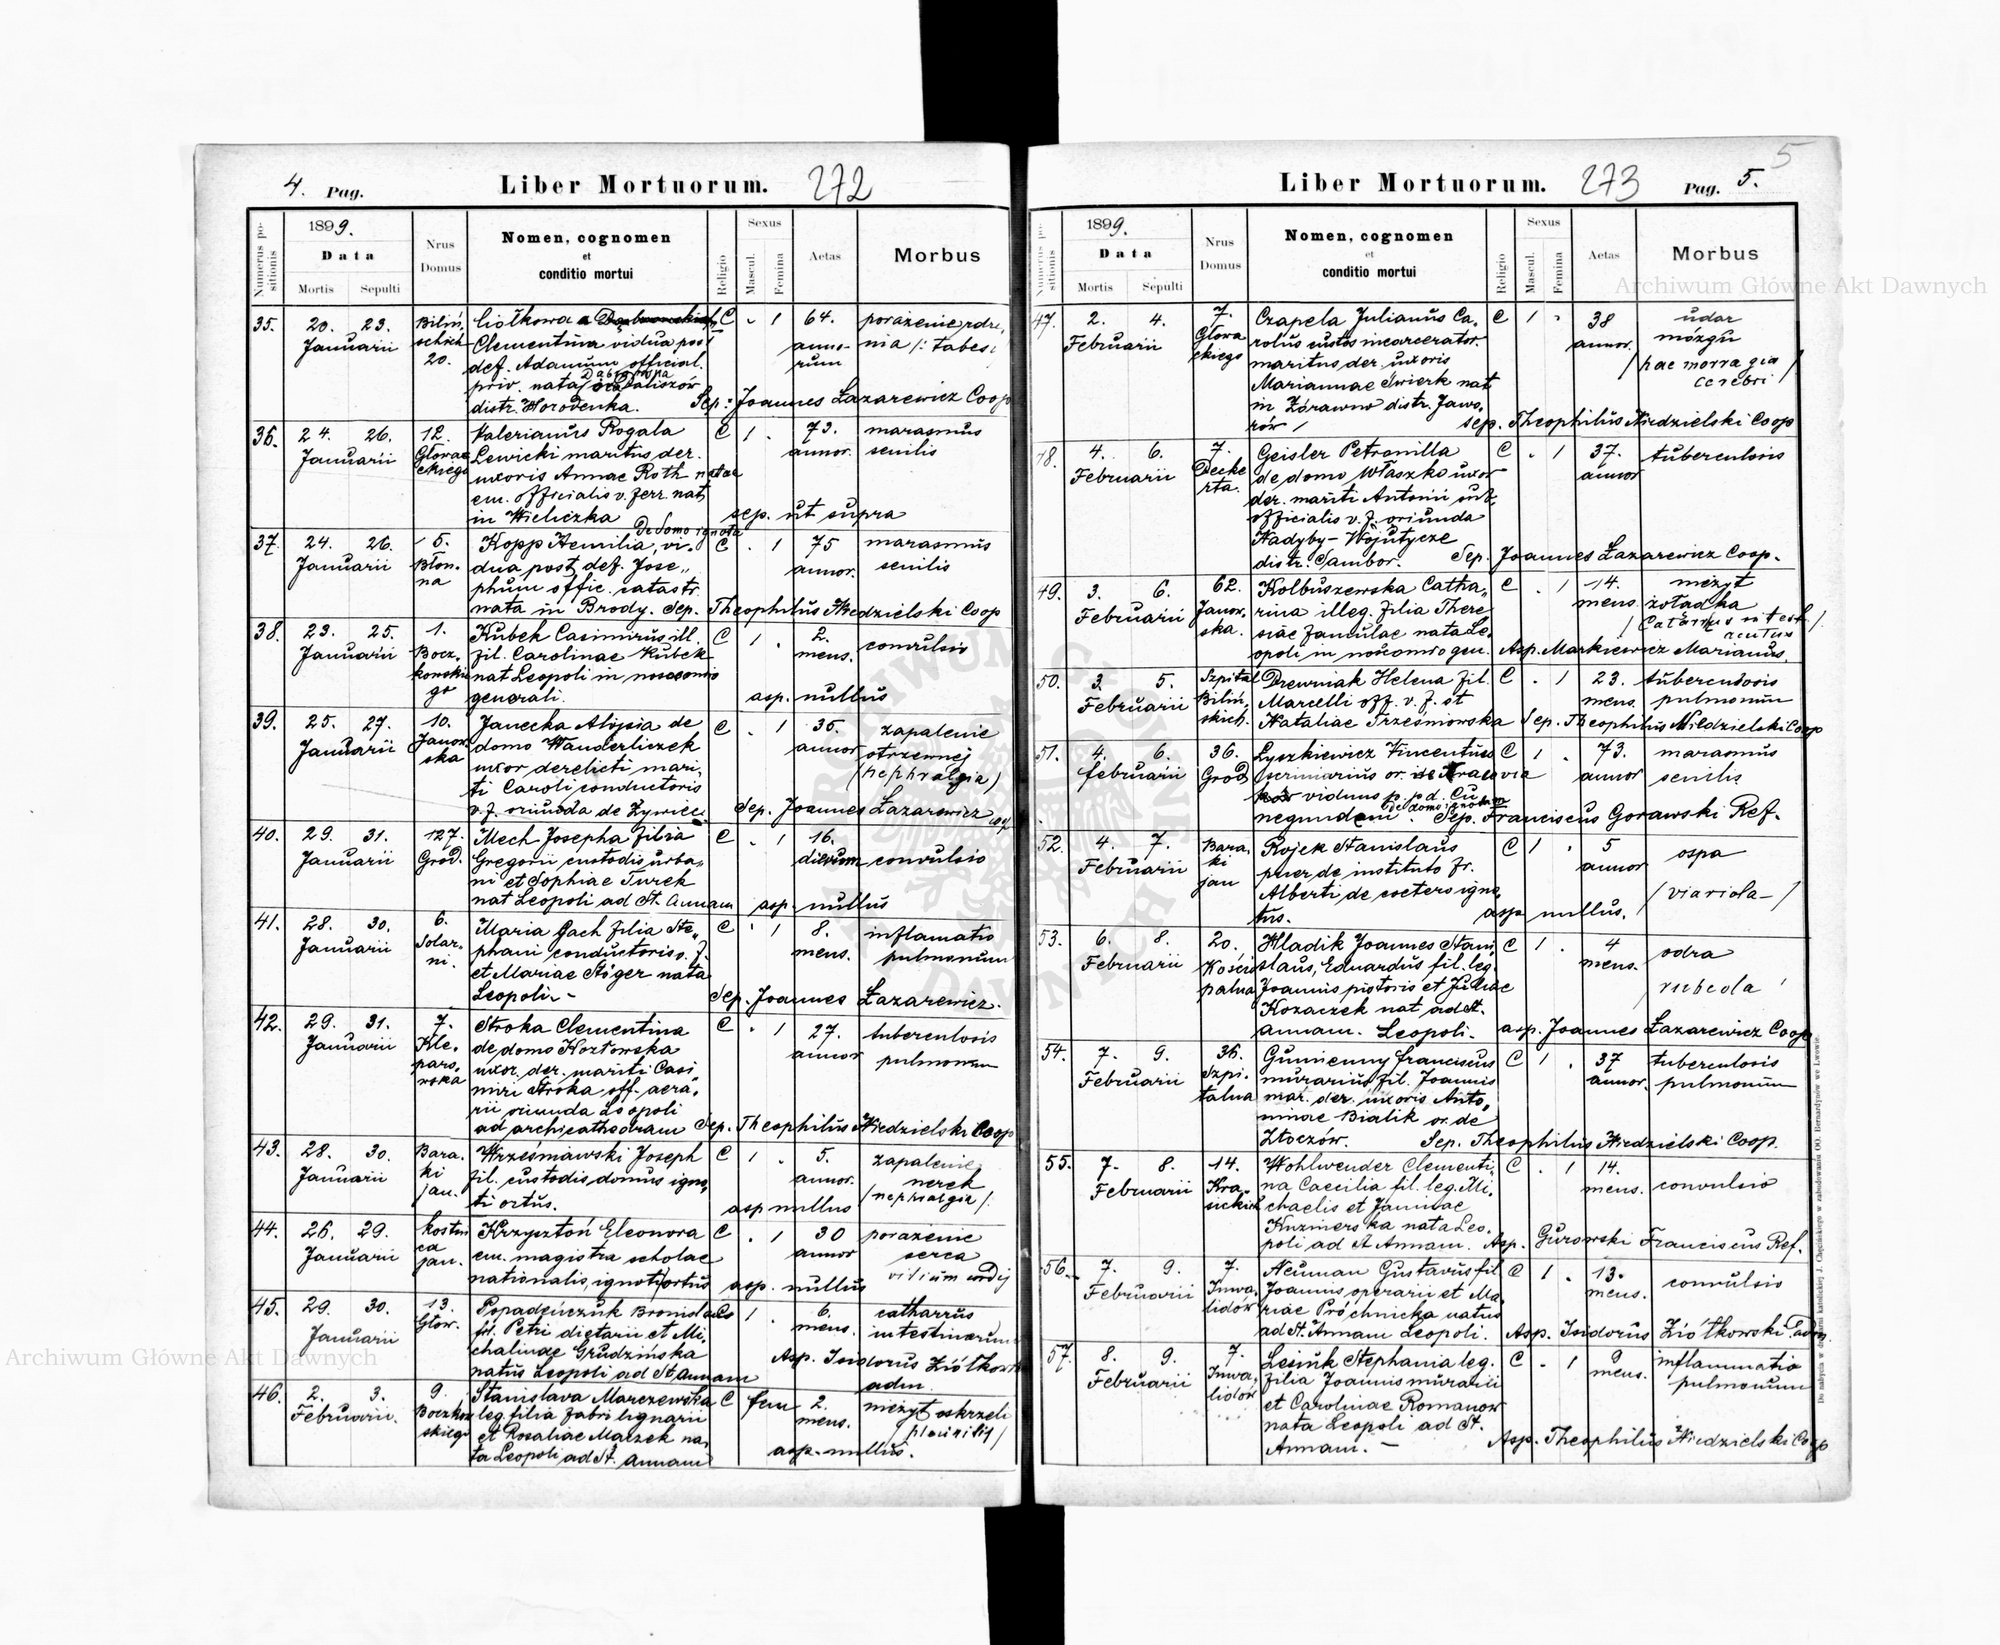 4. Pag.
Liber Mortuorum.
272
Numerus positionis
1899.
Data
Mortis Sepulti
Nrus Domus
Nomen, cognomen
et
conditio mortui
Religio
Sexus
Mascul. Femina
Aetas
Morbus
35. 20. 23. Januarii
Biliń. 20.
Ciołkowa
Clementina vidua post
def. Adamum official.
priv. nata
distr. Horodenka.
C 1 64. annorum
porażenie rdze,
nia /: tabes
Sep: Joannes Łazarewicz Coop
36. 24. 26. Januarii
12. Głowackiego
Valerianus Rogala
Lewicki maritus der.
uxoris Annae Roth natae
em. officialis v. ferr. nat
in Wieliczka
C 1 73. annor.
marasmus
senilis
sep. ut supra
37. 24. 26. Januarii
5. Błonna
De domo ignota
Kopp Aemilia, vi-
dua post def. Jose„
phum offic. catastr.
nata in Brody. Sep. Theophilus Niedzielski Coop
C 1 75 annor.
marasmus
senilis
38. 23. 25. Januarii
1. Boczkowskiego
Kubek Casimirus ill.
fil. Carolinae Kubek
nat Leopoli in nosocomio
generali.
C 1 2. mens.
convulsio
asp. nullus
39. 25. 27. Januarii
10. Janowska
Janecka Aloysia de
domo Wanderliczek
uxor derelicti mari,
ti Caroli conductoris
v. f. oriunda de Zywiec
C 1 35. annor
zapalenie
otrzewnej
(nephralgia)
Sep. Joannes Łazarewicz
40. 29. 31. Januarii
127. Grod.
Mech Josepha filia
Gregorii custodis urba„
ni et Sophiae Turek
nat Leopoli ad St. Annam
C 1 16. dierum
convulsio
asp. nullus
41. 28. 30. Januarii
6. Solarni.
Maria Gach filia Ste„
phani conductoris v. f.
et Mariae Stöger nata
Leopoli -
C 1 8. mens.
inflamatio
pulmonum
Sep. Joannes Łazarewicz.
42. 29. 31. Januarii
7. Kleparowska
Stroka Clementina
de domo Kozłowska
uxor. der. mariti Casi
miri Stroka off. aera,
rii oriunda Leopoli
ad archicathedram Sep. Theophilus Niedzielski Coop
C 1 27. annor
tuberculosis
pulmonum
43. 28. 30. Januarii
Baraki jan.
Wrześniawski Joseph
fil. custodis domus igno,
ti ortus.
C 1 5. annor.
zapalenie
nerek
/nephralgia/.
asp nullus
44. 26. 29. Januarii
kostnica jan.
Krzysztoń Eleonora
em. magistra scholae
nationalis, ignoti ortus
C 1 30 annor
porażenie
serca
vitium cordis
asp. nullus
45. 29. 30. Januarii
13. Głow.
Popadeńczuk Bronislaus
fil. Petri dietarii et Mi,
chalinae Grudzińska
natus Leopoli ad St. Annam
1 6. mens.
catharrus
intestinorum
Asp. Isidorus Ziółkowski
adm.
46. 2. 3. Februarii.
9. Boczkowskiego
Stanislava Marczewska
leg. filia fabri lignarii
et Rosaliae Marzek na,
ta Leopoli ad St. Annam
C fem 2. mens.
nieżyt oskrzeli
asp. nullus.
5
Liber Mortuorum.
273
Pag. 5.
Numerus positionis
1899.
Data
Mortis Sepulti
Nrus Domus
Nomen, cognomen
et
conditio mortui
Religio
Sexus
Mascul. Femina
Aetas
Morbus
47. 2. 4. Februarii
7. Głowackiego
Czapela Julianus Ca„
rolus custos incarcerator.
maritus der. uxoris
Mariannae Świerk nat
in Żórawno distr. Jawo„
rów /
C 1 38 annor.
udar
mózgu
/haemorragia
cerebri/
sep. Theophilus Niedzielski Coop
48. 4. 6. Februarii
7. Deckerta.
Geisler Petronilla
de domo Właszko uxor
der. mariti Antonii sub
officialis v. f. oriunda
Nadyby-Wojutycze
distr. Sambor. Sep. Joannes Łazarewicz Coop.
C 1 37. annor
tuberculosis
49. 3. 6. Februarii
62. Janowska.
Kolbuszewska Catha„
rina illeg. filia There
siae famulae nata Le„
opoli in nosocomio gen. Asp. Markiewicz Marianus.
C 1 14. mens.
nieżyt
żołądka
50. 3. 5. Februarii
Szpital Bilińskich.
Drewniak Helena fil.
Marcelli off. v. f. et
Nataliae Trześniowska Sep. Theophilus Niedzielski Coop
C 1 23. mens.
tuberculosis
pulmonum
51. 4. 6. Februarii
36. Grod
Łyszkiewicz Vincentius
scriniarius or. Kracovia
viduus p. p. d. Cu
negundem. de domo ignotam
Sep. Franciscus Gorawski Ref.
C 1 73. annor
marasmus
senilis
52. 4. 7. Februarii
Baraki jan
Rojek Stanislaus
puer de instituto fr.
Alberti de coetero igno,
tus.
C 1 5 annor
ospa
/viariola-/
asp nullus.
53. 6. 8. Februarii
20. Kościopalna
Hladik Joannes Stani
slaus, Eduardus fil. leg.
Joannis pistoris et Juliae
Kozaczek nat ad St.
Annam. Leopoli. asp. Joannes Łazarewicz Coop
C 1 4 mens.
odra
/rubeola/
54. 7. 9. Februarii
36. Szpitalna
Gumienny Franciscus
murarius fil. Joannis
mar. der. uxoris Anto,
ninae Bialik or. de
Złoczów. Sep. Theophilus Niedzielski Coop.
C 1 37 annor.
tuberculosis
pulmonum
55. 7. 8. Februarii
14. Krasickich
Wohlwender Clementi„
na Caecilia fil. leg. Mi„
chaelis et Janinae
Kuzmierska nata Leo„
poli ad St Annam. Asp. Gurowski Franciscus Ref.
C 1 14. mens.
convulsio
56. 7. 9. Februarii
7. Inwalidów
Neuman Gustavus fil
Joannis operarii et Ma„
riae Próchnicka natus
ad St. Annam Leopoli. Asp. Isidorus Ziółkowski adm.
C 1 13. mens.
convulsio
57. 8. 9. Februarii
7. Inwalidów
Lesiuk Stephania leg.
filia Joannis murarii
et Carolinae Romanow
nata Leopoli ad St.
Annam. -
C 1 9 mens.
inflammatio
pulmonum
Asp. Theophilus Niedzielski Coop
Do nabycia w drukarni katolickiej J. Chęcińskiego w zabudowaniu OO. Bernardynów we Lwowie.
Archiwum Główne Akt Dawnych
Archiwum Główne Akt Dawnych